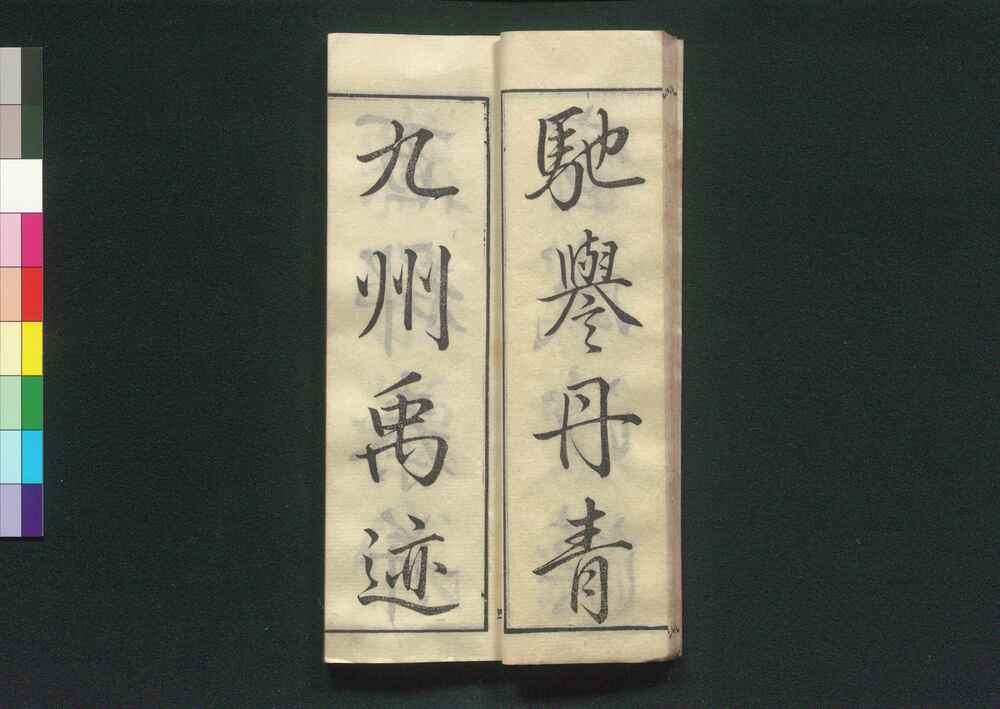 馳譽丹青
九州禹迹